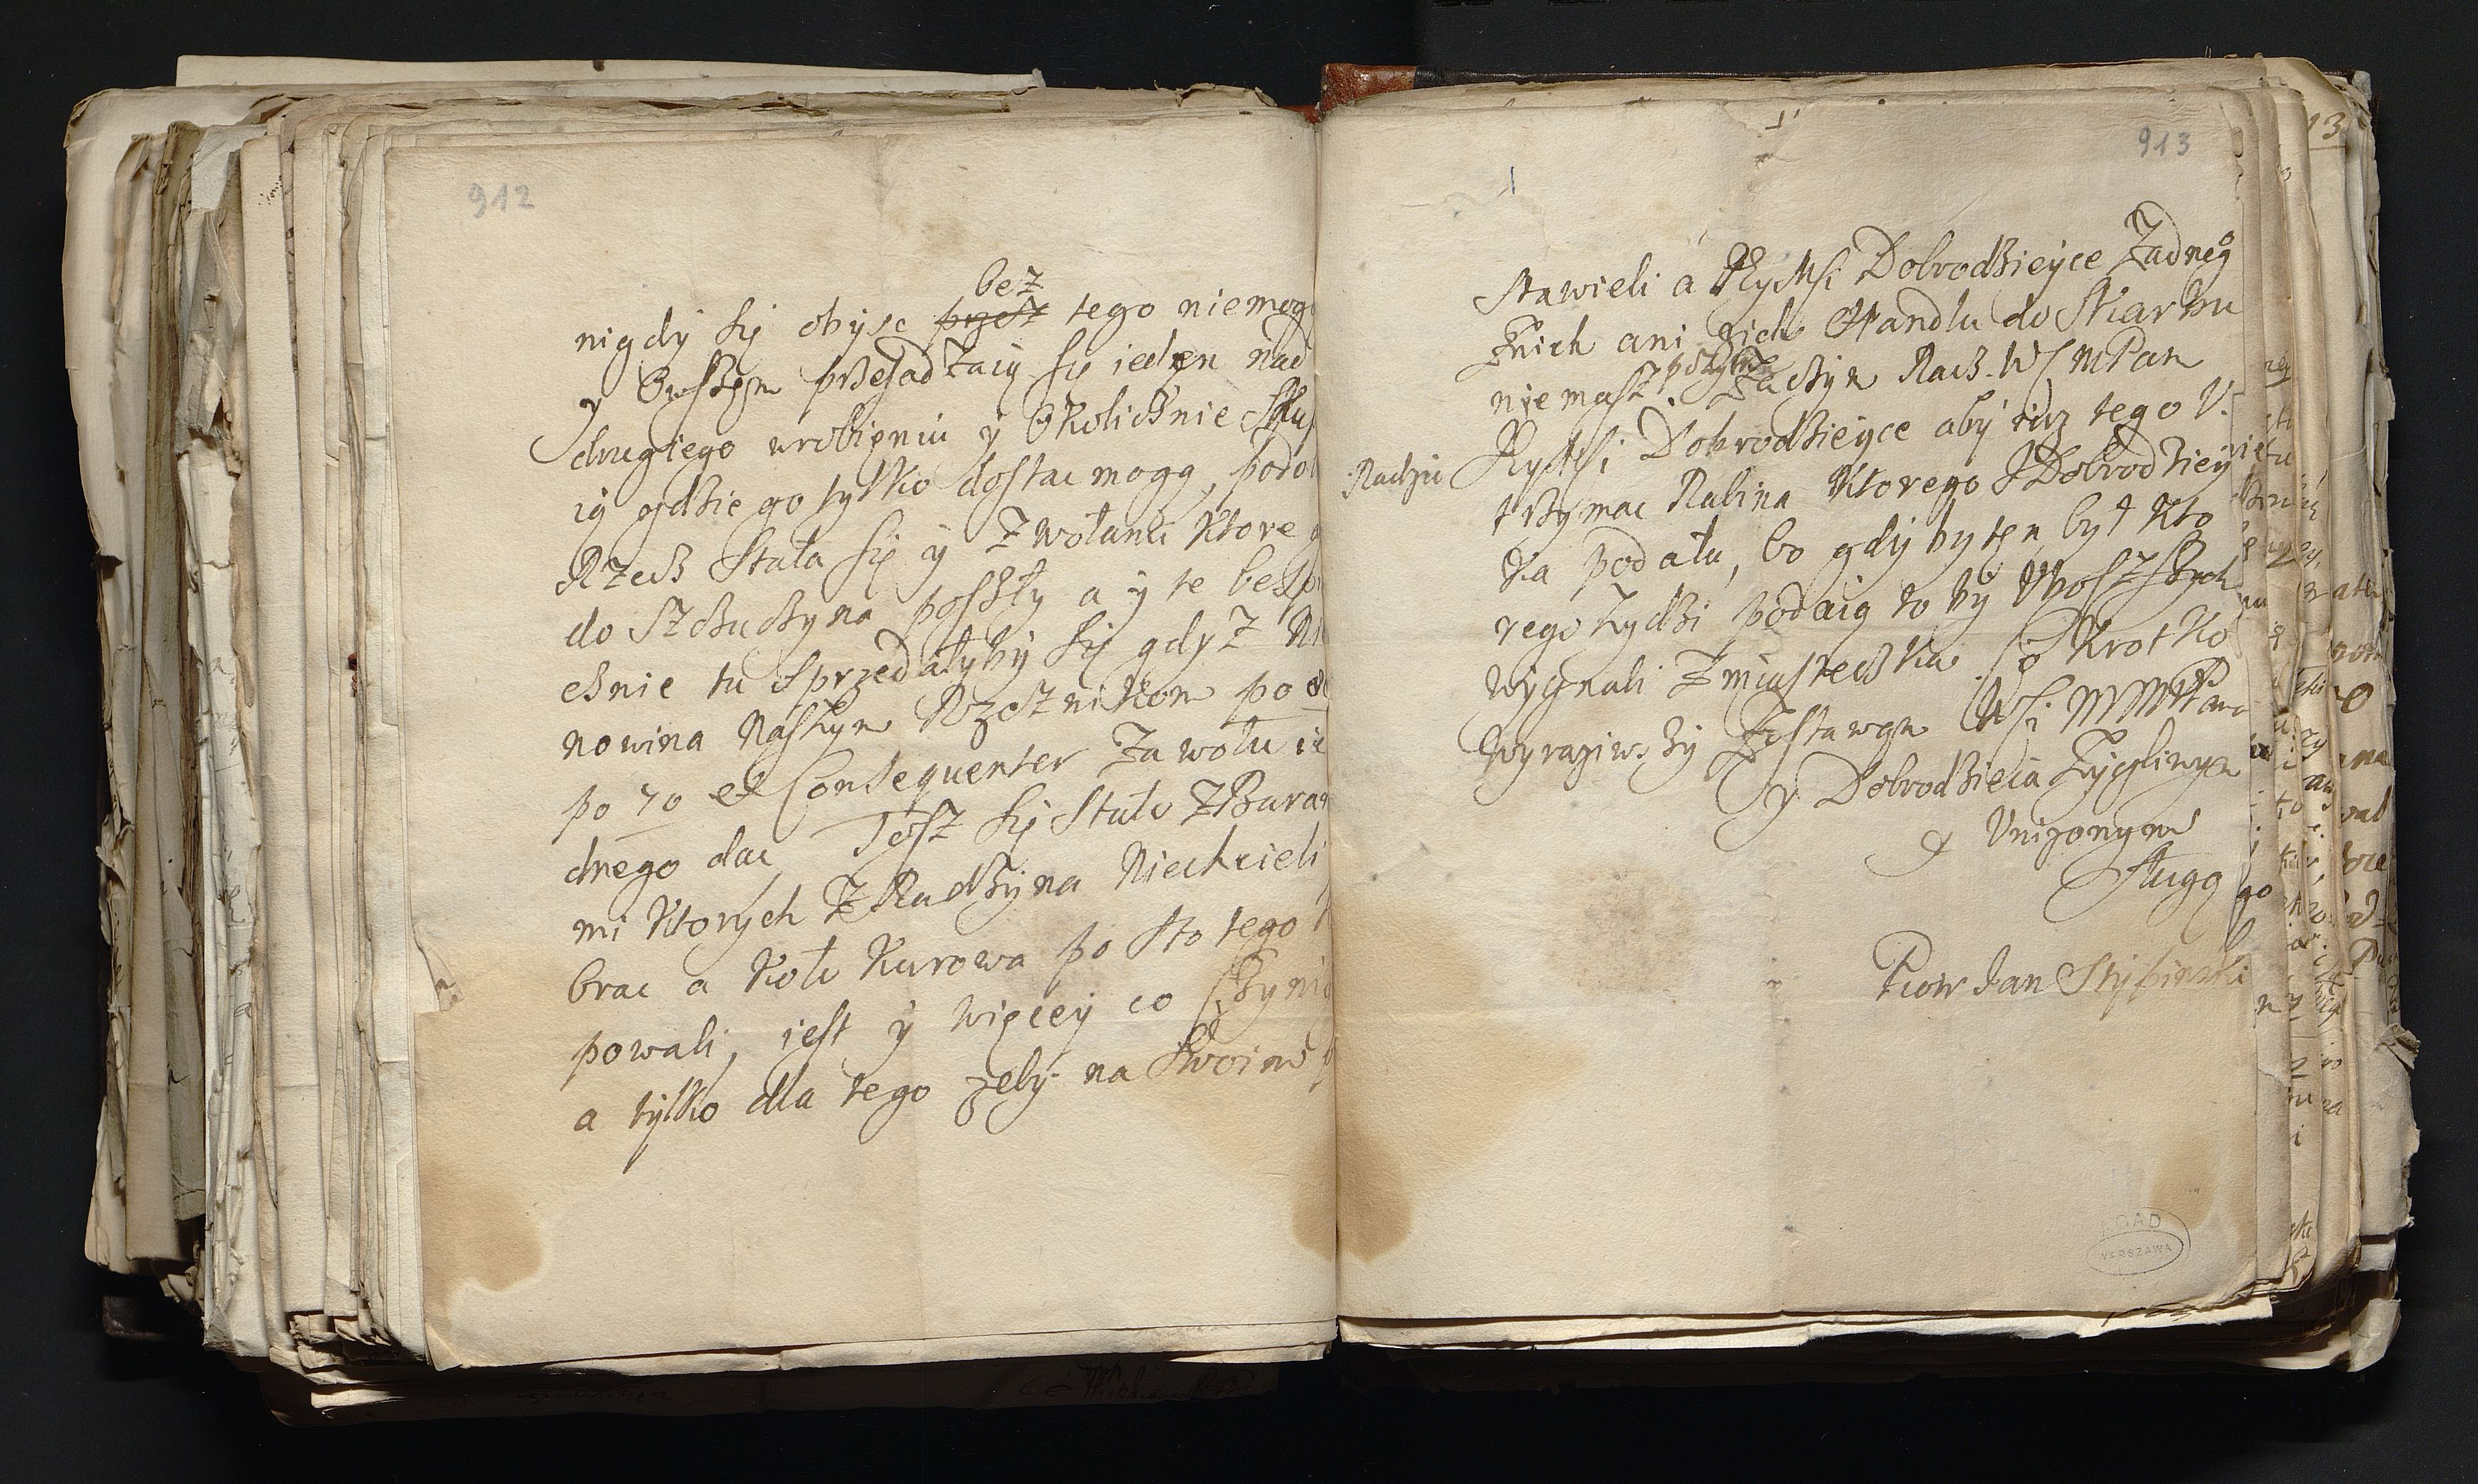 912
bez
nigdy się obysc przez tego niemog
y Owszem przesadzaią się ieden nad
drugiego wrobieniu y Okolicznie Sku
ią gdzie go tylko dostac mogą, podob
Rzecz Stała się y Zwołami Ktore
do Szczuczyna poszły a y te bezp
cznie tu Sprzedałyby się gdyz
nowina Naszym Rzeznikom po
po 70 et Consequenter Zawołu ie
dnego dac, Tosz się Stało Z Bara
mi Ktorych Z Radzyna Niechcieli
brac a Koło Kurowa po Sto tego
powali, iest y więcey co Czynią
a tylko dla tego zeby na Swoim
913
Stawieli a JeyMsi Dobrodzieyce Zadneg
Znich ani Zich Handlu do Skarbu
niemasz. Zaczym Racz. WMPan
Radzic JeyMsi Dobrodzieyce aby iusz tego V.
trzymac Rabina Ktorego JDobrodziey
ka podała, bo gdyby ten był Kto
rego Zydzi podaią to by Vboszszych
wygnali Zmiasteczka. Co Krotko
wyraziwszy Zostawam WMMPana
y Dobrodzieia Zyczliwym
y Vnizonym
Sługą
Piotr Jan Stypinski
AGAD
WARSZAWA